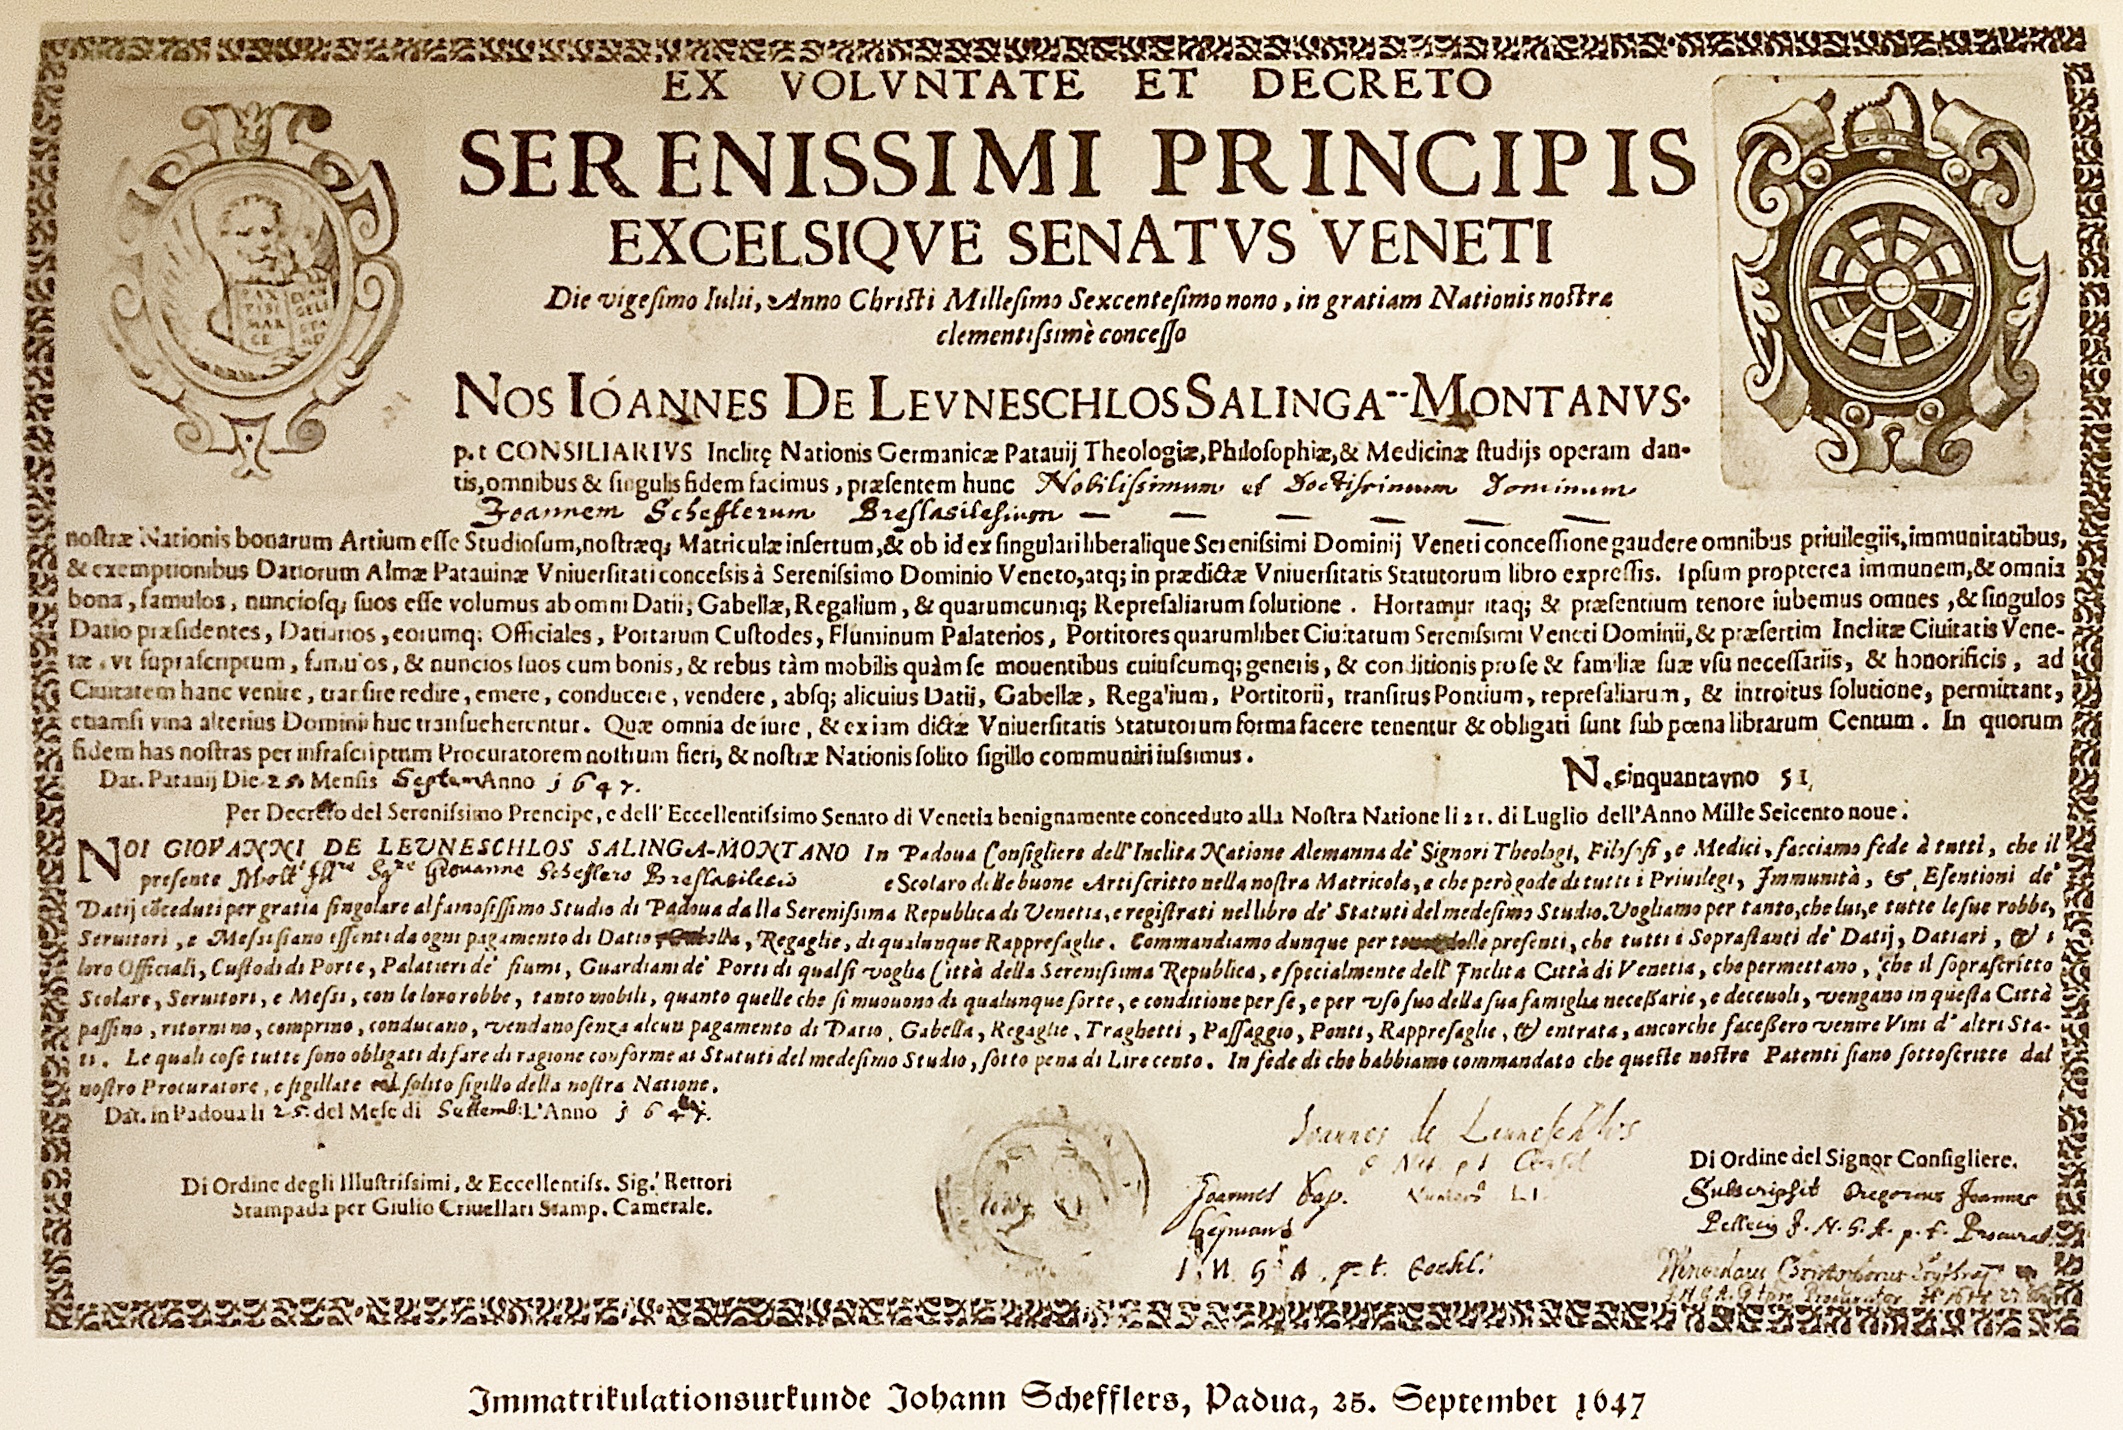 EX VOLVNTATE ET DECRETO
SERENISSIMI PRINCIPIS
EXCELSIQVE SENATVS VENETI
Die vigesimo Iulii, Anno Christi Millesimo Sexcentesimo nono, in gratiam Nationis nostræ
clementissimè concesso
NOS IÓANNES DE LEVNESCHLOS SALINGA--MONTANVS.
p.t CONSILIARIVS Inclitę Nationis Germanicæ Patauij Theologiæ, Philosophiæ, & Medicinæ studijs operam dan-
tis, omnibus & singulis fidem facimus, præsentem hunc Nobilissimum et Doctissimum Dominum
Joannem Schefflerum Breslasilesium
nostræ Nationis bonarum Artium esse Studiosum, nostræq; Matriculæ insertum, & ob id ex singulari liberalique Serenissimi Dominij Veneti concessione gaudere omnibus priuilegiis, immunitatibus,
& exemptionibus Datiorum Almæ Patauinæ Vniuersitati concessis à Serenissimo Dominio Veneto, atq; in prædictæ Vniuersitatis Statutorum libro expressis. Ipsum propterea immunem, & omnia
bona, famulos, nunciosq; suos esse volumus ab omni Datii, Gabellæ, Regalium, & quarumcumq; Represaliarum solutione. Hortamur itaq; & præsentium tenore iubemus omnes, & singulos
Datio præsidentes, Datiarios, eorumq; Officiales, Portarum Custodes, Fluminum Palaterios, Portitores quarumlibet Ciuitatum Serenissimi Veneti Dominii, & præsertim Inclitæ Ciuitatis Vene-
tæ, vt suprascriptum, famulos, & nuncios suos cum bonis, & rebus tàm mobilis quàm se mouentibus cuiuscumq; generis, & conditionis pro se & familiæ suæ vsu necessariis, & honorificis, ad
Ciuitatem hanc venire, transire redire, emere, conducere, vendere, absq; alicuius Datii, Gabellæ, Rega'ium, Portitorii, transitus Pontium, represaliarum, & introitus solutione, permittant,
etiamsi vina alterius Dominii huc transueherentur. Quæ omnia de iure, & ex iam dictæ Vniuersitatis Statutorum forma facere tenentur & obligati sunt sub pœna librarum Centum. In quorum
fidem has nostras per infrascriptum Procuratorem nostrum fieri, & nostræ Nationis solito sigillo communiri iussimus.
Dat. Patauij Die 25 Mensis Septem Anno 1647.
N. cinquantavno 51
Per Decreto del Serenissimo Prencipe, e dell' Eccellentissimo Senato di Venetia benignamente conceduto alla Nostra Natione li 21. di Luglio dell'Anno Mille Seicento noue.
NOI GIOVANNI DE LEVNESCHLOS SALINGA-MONTANO In Padoua Consigliere dell'Inclita Natione Alemanna de' Signori Theologi, Filosofi, e Medici, facciamo fede à tutti, che il
presente Molt' Illre Sgre Giouanne Schefflero Breslasilesio e Scolaro delle buone Arti scritto nella nostra Matricola, e che però gode di tutti i Priuilegi, Immunità, & Esentioni de'
Datij cõceduti per gratia singolare al famosissimo Studio di Padoua dalla Serenissima Republica di Venetia, e registrati nel libro de' Statuti del medesimo Studio. Vogliamo per tanto, che lui, e tutte le sue robbe,
Seruitori, e Messi siano essenti da ogni pagamento di Datio, Regaglie, di qualunque Rappresaglie. Commandiamo dunque per delle presenti, che tutti i Soprastanti de' Datij, Datiari, & i
loro Officiali, Custodi di Porte, Palatieri de' fiumi, Guardiani de' Porti di qual si voglia Città della Serenissima Republica, e specialmente dell' Inclita Città di Venetia, che permettano, che il soprascritto
Scolare, Seruitori, e Messi, con le loro robbe, tanto mobili, quanto quelle che si muouono di qualunque sorte, e conditione per se, e per vso suo della sua famiglia necessarie, e deceuoli, vengano in questa Città
passino, ritornino, comprino, conducano, vendano senza alcun pagamento di Datio, Gabella, Regaglie, Traghetti, Passaggio, Ponti, Rappresaglie, & entrata, ancorche facessero venire Vini d' altri Sta-
ti. Le quali cose tutte sono obligati di fare di ragione conforme ai Statuti del medesimo Studio, sotto pena di Lire cento. In fede di che habbiamo commandato che queste nostre Patenti siano sottoscritte dal
nostro Procuratore, e sigillate col solito sigillo della nostra Natione.
Dat. in Padoua li 25. del Mese di Settemb: L'Anno 1647.
Joannes de Leuneschlos
Di Ordine del Signor Consigliere.
Di Ordine degli Illustrissimi, & Eccellentiss. Sig.' Rettori
Stampada per Giulio Criuellari Stamp. Camerale.
Joannes Cap.
Subscripsit Gregorius Joannes
p. t. Procurat.
I. N. G. A. p. t. Consil:
Immatrikulationsurkunde Johann Schefflers, Padua, 25. September 1647